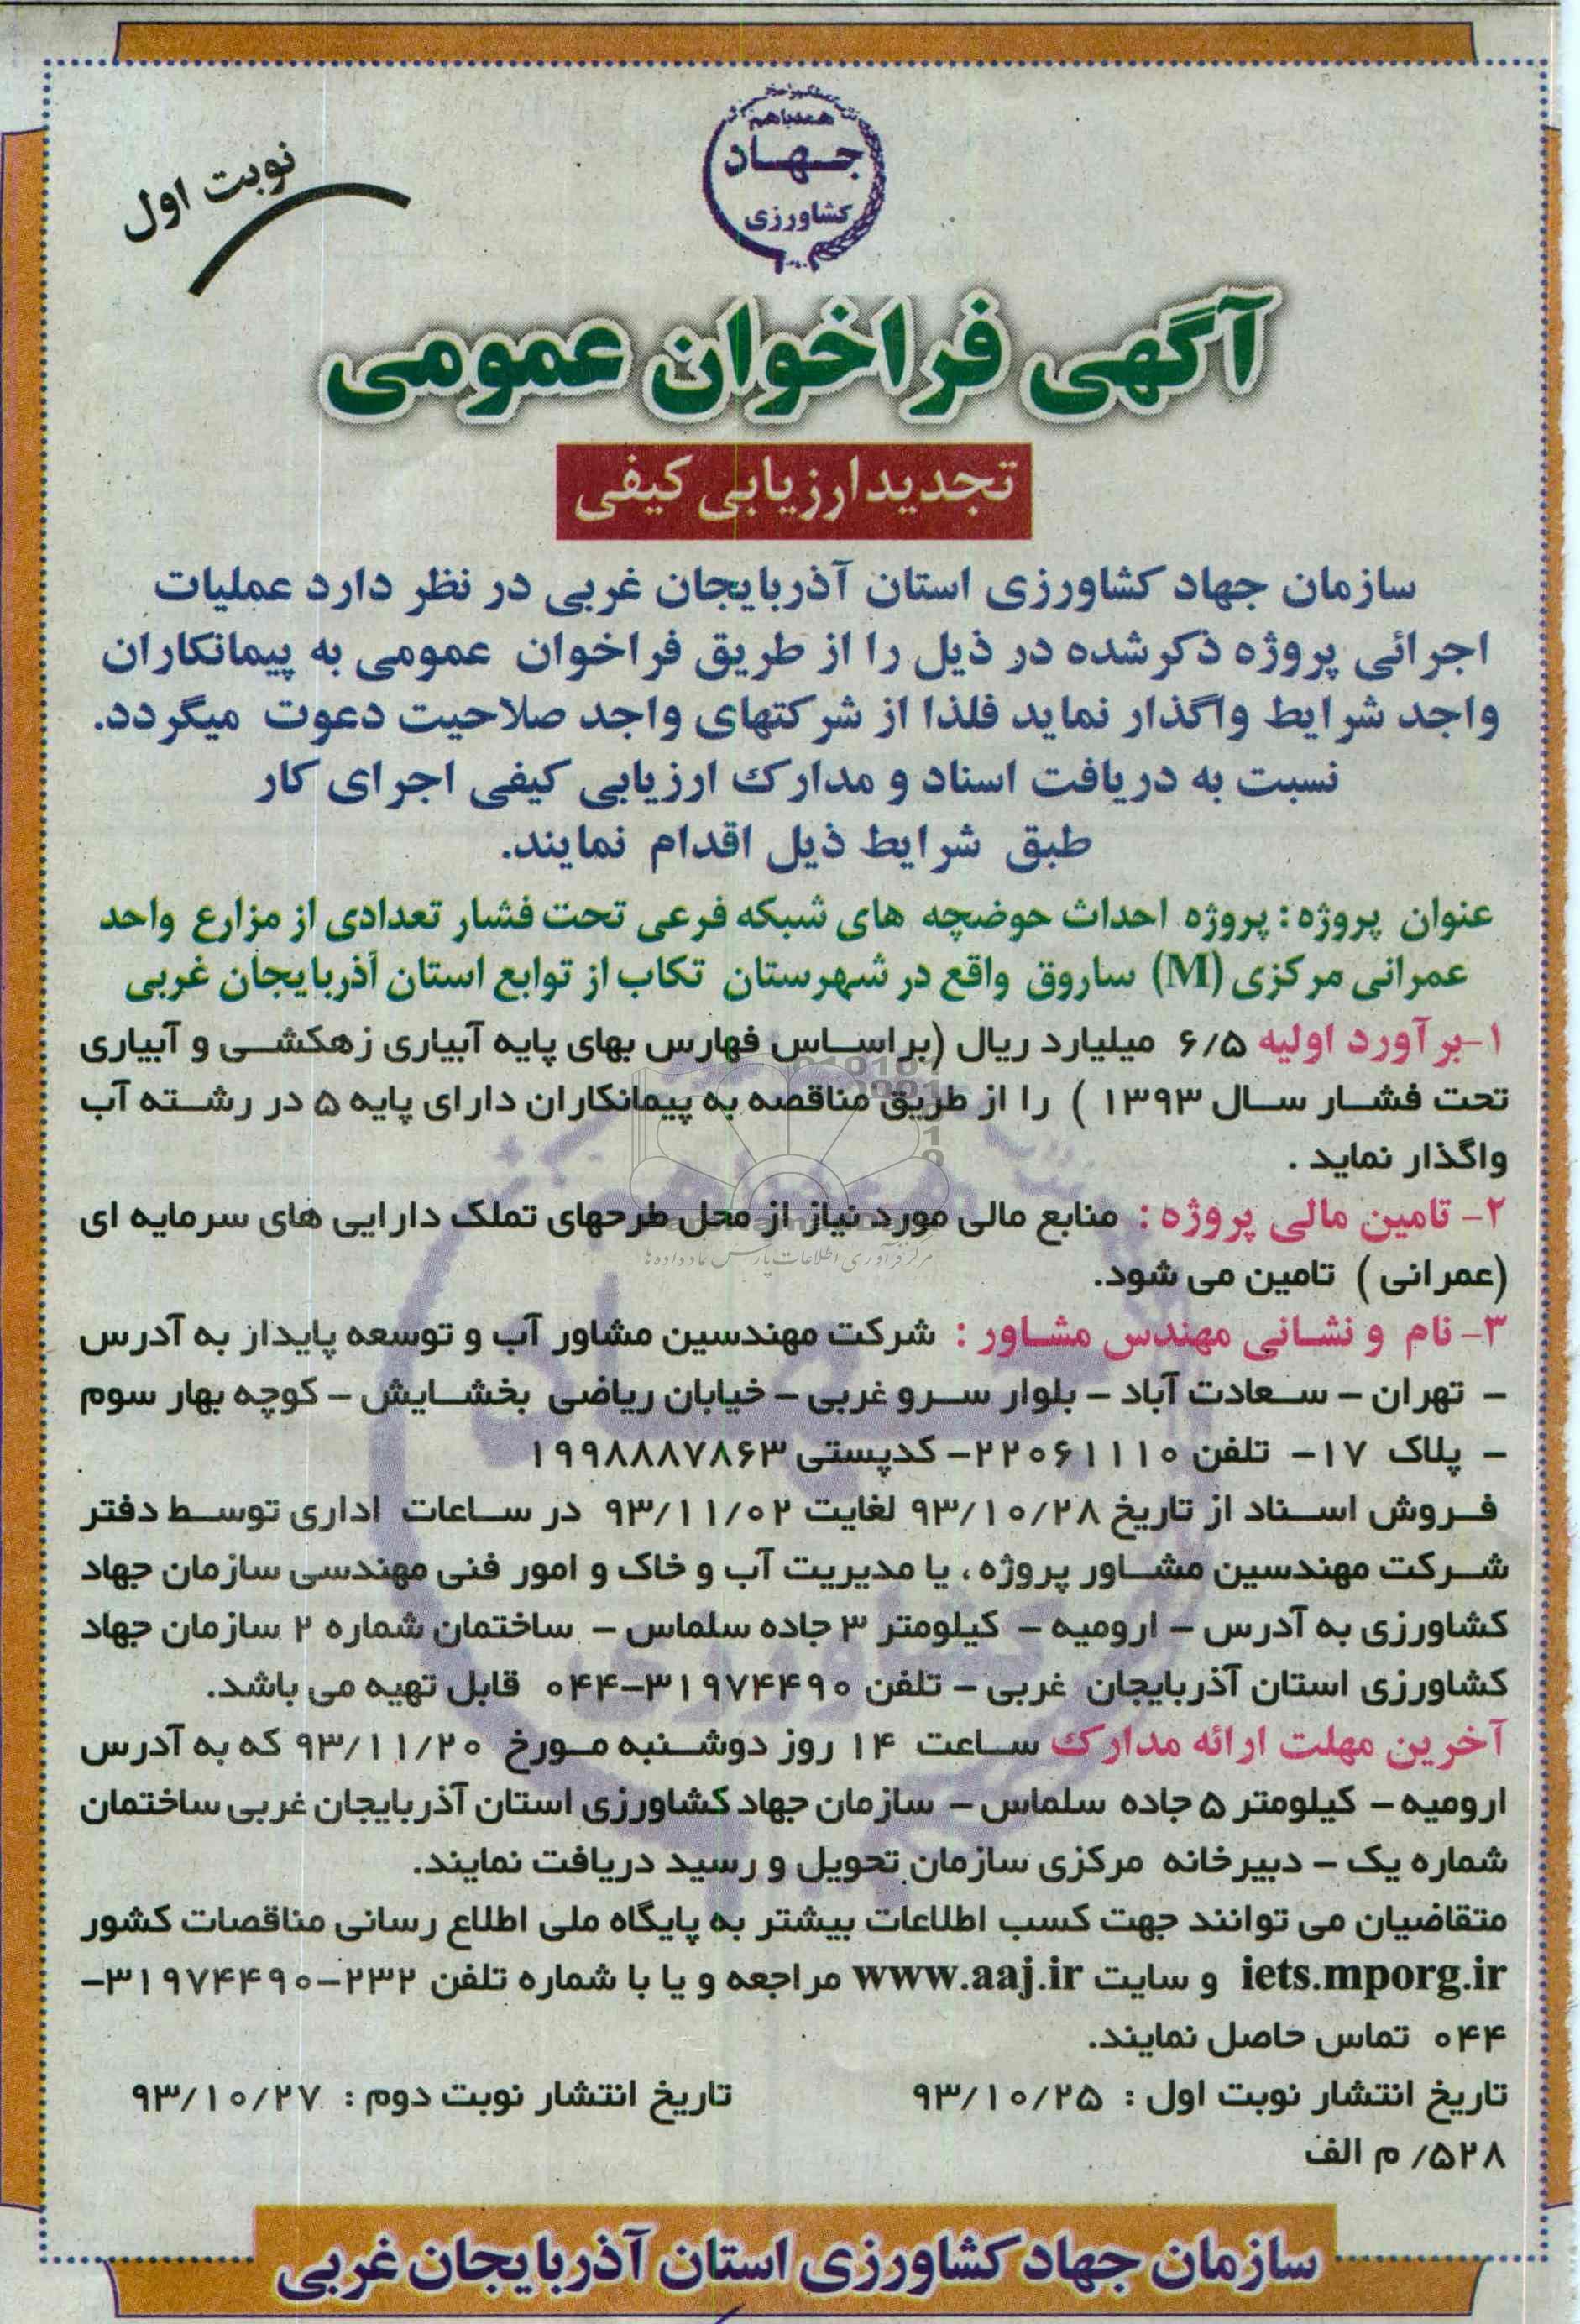 همه با هم
جهاد
کشاورزی
نوبت اول
آگهی فراخوان عمومی
تجدید ارزیابی کیفی
سازمان جهاد کشاورزی استان آذربایجان غربی در نظر دارد عملیات
اجرائی پروژه ذکر شده در ذیل را از طریق فراخوان عمومی به پیمانکاران
واجد شرایط واگذار نماید فلذا از شرکتهای واجد صلاحیت دعوت میگردد.
نسبت به دریافت اسناد و مدارک ارزیابی کیفی اجرای کار
طبق شرایط ذیل اقدام نمایند.
عنوان پروژه : پروژه احداث حوضچه های شبکه فرعی تحت فشار تعدادی از مزارع واحد
عمرانی مرکزی (M) ساروق واقع در شهرستان تکاب از توابع استان آذربایجان غربی
۱-برآورد اولیه ۶/۵ میلیارد ریال (براساس فهارس بهای پایه آبیاری زهکشی و آبیاری
تحت فشار سال ۱۳۹۳ ) را از طریق مناقصه به پیمانکاران دارای پایه ۵ در رشته آب
واگذار نماید .
۲- تامین مالی پروژه : منابع مالی مورد نیاز از محل طرحهای تملک دارایی های سرمایه ای
(عمرانی ) تامین می شود.
۳- نام و نشانی مهندس مشاور : شرکت مهندسین مشاور آب و توسعه پایدار به آدرس
- تهران - سعادت آباد - بلوار سرو غربی - خیابان ریاضی بخشایش - کوچه بهار سوم
- پلاک ۱۷- تلفن ۲۲۰۶۱۱۱۰- کدپستی ۱۹۹۸۸۸۷۸۶۳
فروش اسناد از تاریخ ۹۳/۱۰/۲۸ لغایت ۹۳/۱۱/۰۲ در ساعات اداری توسط دفتر
شرکت مهندسین مشاور پروژه ، یا مدیریت آب و خاک و امور فنی مهندسی سازمان جهاد
کشاورزی به آدرس - ارومیه - کیلومتر ۳ جاده سلماس - ساختمان شماره ۲ سازمان جهاد
کشاورزی استان آذربایجان غربی - تلفن ۳۱۹۷۴۴۹۰-۰۴۴ قابل تهیه می باشد.
آخرین مهلت ارائه مدارک ساعت ۱۴ روز دوشنبه مورخ ۹۳/۱۱/۲۰ که به آدرس
ارومیه - کیلومتر ۵ جاده سلماس - سازمان جهاد کشاورزی استان آذربایجان غربی ساختمان
شماره یک - دبیرخانه مرکزی سازمان تحویل و رسید دریافت نمایند.
متقاضیان می توانند جهت کسب اطلاعات بیشتر به پایگاه ملی اطلاع رسانی مناقصات کشور
iets.mporg.ir و سایت www.aaj.ir مراجعه و یا با شماره تلفن ۲۳۲-۳۱۹۷۴۴۹۰-
۰۴۴ تماس حاصل نمایند.
تاریخ انتشار نوبت اول : ۹۳/۱۰/۲۵ تاریخ انتشار نوبت دوم : ۹۳/۱۰/۲۷
۵۲۸/ م الف
سازمان جهاد کشاورزی استان آذربایجان غربی